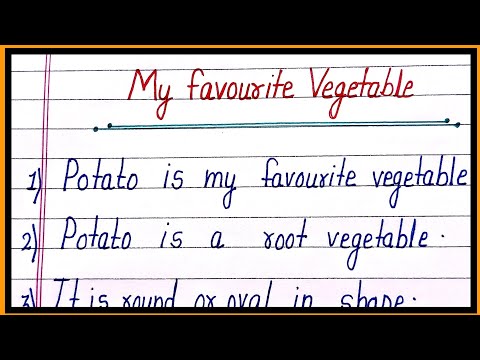 My favourite Vegetable
1) Potato is my favourite vegetable
2) Potato is a root vegetable.
3) It is round or oval in shape.